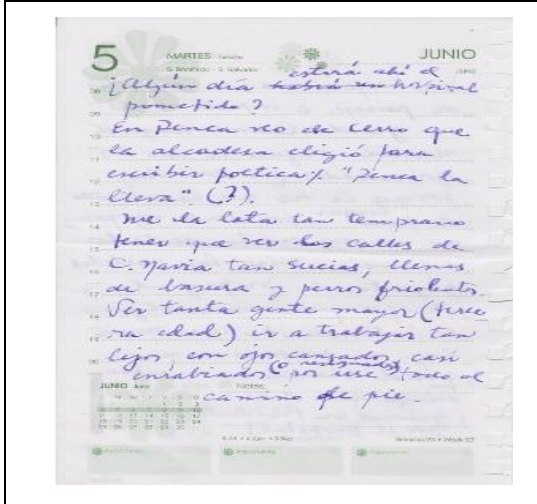 5 MARTES JUNIO
estará ahí el
¿Algún día habrá un hospital
pometido?
En Renca veo el cerro que
la alcaldesa eligió para
escribir poética/ "Renca la
lleva" (?).
Me da lata tan temprano
tener que ver las calles de
C. Navia tan sucias, llenas
de basura y perros friolentos.
Ver tanta gente mayor (terce
ra edad) ir a trabajar tan
lejos, con ojos cansados, casi
enrabiados (o resignados) por irse todo el
camino de pie.
JUNIO
Notas